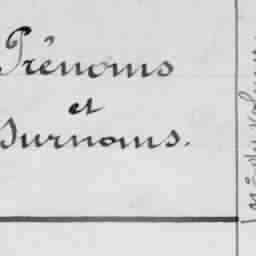 Prénoms
et
Surnoms.